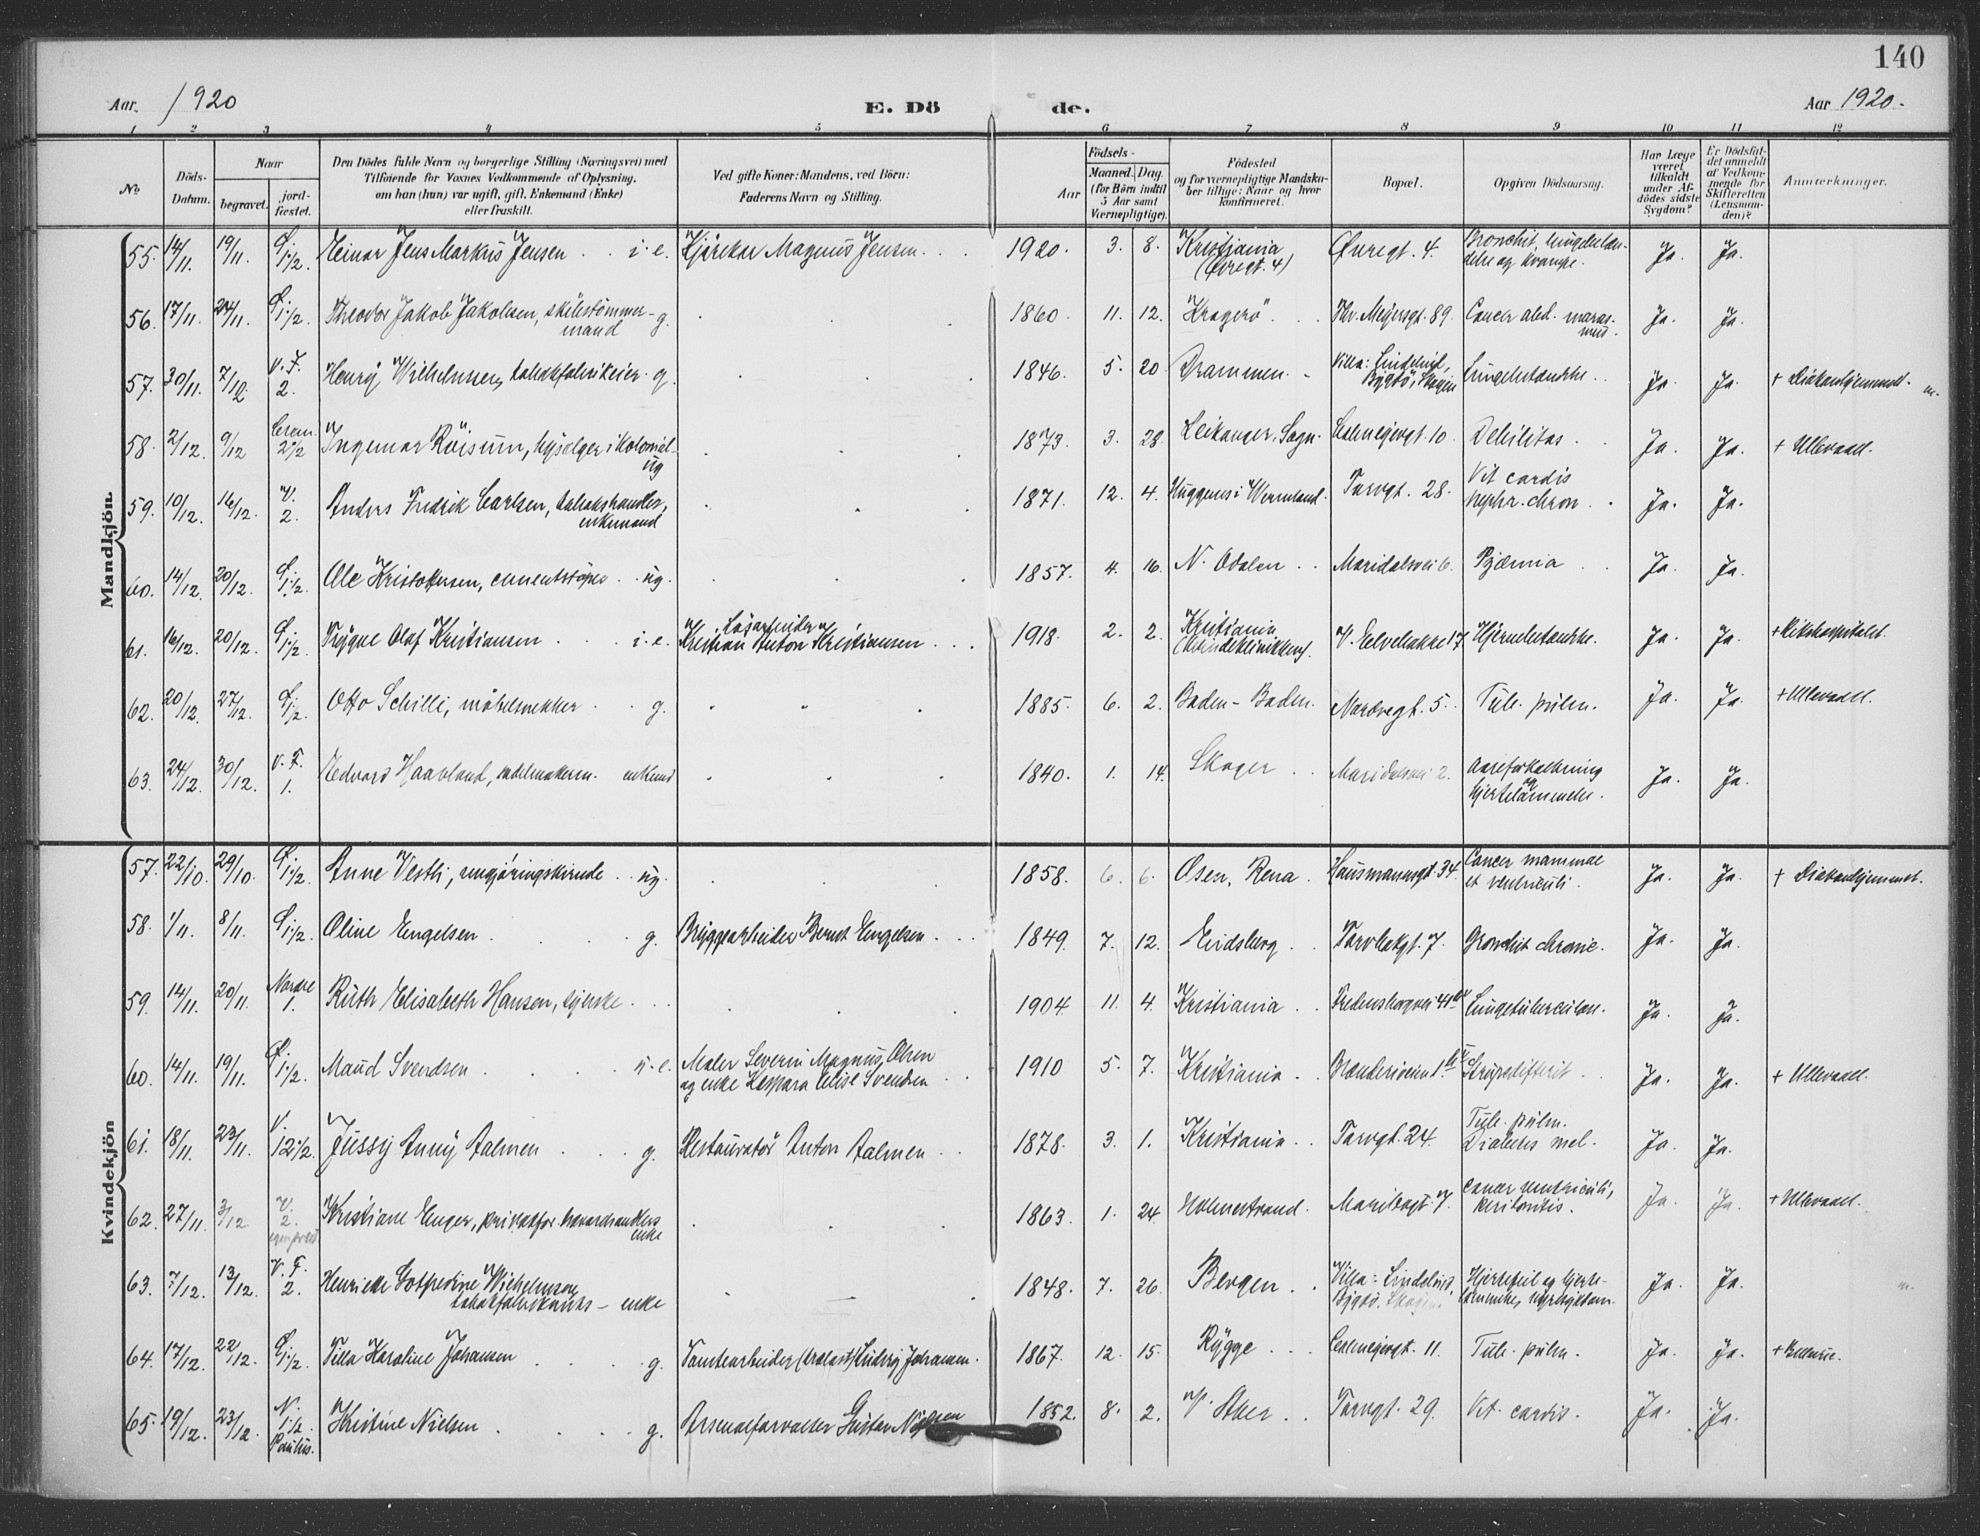 140
Aar 1920
E. Dö de.
Aar 1920.
1 2 3 4 5 6 7 8 9 10 11 12
No
Döds-Datum.
Naar
begravet.
jord-fæstet.
Den Dödes fulde Navn og borgerlige Stilling (Næringsvei) med
Tilföiende for Voxnes Vedkommende af Oplysning,
om han (hun) var ugift, gift, Enkemand (Enke)
eller fraskilt.
Ved gifte Koner: Mandens, ved Börn:
Faderens Navn og Stilling.
Födsels-
Aar
Maaned. Dag.
(for Börn indtil
5 Aar samt
Værnepligtige).
Födested
og for værnepligtige Mandska-
ber tillige: Naar og hvor
konfirmeret.
Bopæl.
Opgiven Dödsaarsag.
Har Læge
været
tilkaldt
under Af-
dödes sidste
Sygdom?
Er Dödsfal-
det anmeldt
af Vedkom-
mende for
Skifteretten
(Lensman-
den)?
Anmærkninger.
Mandkjön
55. 14/11. 19/11. 1/2. Einar Jens Markus Jensen i.e. Magnus Jensen 1920. 3. 8. Kristiania Øvregt. 4. Ja. Ja.
56. 17/11. 24/11. 1/2. Theodor Jakob Jakobsen, g. 1860. 11. 12. Kragerö Thv. Meyersgt. 89. Cancer abd. maras-mus. Ja. Ja.
57. 30/11. 7/12. V. F. 2. Henry Wilhelmsen, tabakfabrikeier g. 1846. 5. 20. Drammen Villa: Lindelund, Bygdö, Skogen Lungebetændelse. Ja. Ja. + Diakonhjemmet.
58. 2/12. 9/12. Crem. 2 1/2 Ingemar Röisum, ug 1873. 3. 28. Leikanger, Sogn. Calmeyergt. 10. Debilitas. Ja. Ja. + Ullevaal.
59. 10/12. 16/12. V. 2. Anders Fredrik Carlsen, tabakshandler, enkemand 1871. 12. 4. Huggenes i Wermland. Torvgt. 28. Vit. cordis nephr. chron. Ja. Ja.
60. 14/12. 20/12. 1/2. Ole Kristoffersen, cementstöper ug. 1857. 4. 16. N. Odalen Maridalsvei 6. Pyæmia Ja. Ja.
61. 16/12. 20/12. 1/2. Trygve Olaf Kristiansen i.e. Lösarbeider Kristian Anton Kristiansen 1918. 2. 2. Kristiania (Kvindeklinikken). V. Elvebakke 17 Ja. Ja. + Rikshospitalet.
62. 20/12. 27/12. 1/2. Otto Schilli, möbelsnekker g. 1885. 6. 2. Baden-Baden. Nordregt. 5. Tub. pulm. Ja. Ja. + Ullevaal.
63. 24/12. 30/12. V. F. 1. Edvard Haavland, sadelmakerm. enkem. 1840. 1. 14. Skoger Maridalsvei 2. Aareforkalkning og hjertelammelse. Ja. Ja.
Kvindekjön
57. 22/10. 29/10. 1/2. Anne Vestli, rengjöringskvinde ug. 1858. 6. 6. Osen, Rena Hausmannsgt. 34. Cancer mammae et ventriculi. Ja. Ja. + Diakonhjemmet.
58. 1/11. 8/11. 1/2. Oline Engelsen g. Bryggearbeider Bernt Engelsen 1849. 7. 12. Eidsberg Torvbakgt. 7. Bronchit chronic. Ja. Ja.
59. 14/11. 20/11. Nordre 1. Ruth Elisabeth Hansen, syerske 1904. 11. 4. Kristiania Fredensborgvei 41 Lungetuberculose. Ja. Ja.
60. 14/11. 19/11. 1/2. Maud Svendsen u.e. Maler Severin Magnus Olsen og enke Kaspara Elise Svendsen 1910 5. 7. Kristiania Strupedifterit Ja. Ja. + Ullevaal.
61. 18/11. 23/11. V. 12 1/2. Jussy Anny Aalmen g. Restauratör Anton Aalmen 1878. 3. 1. Kristiania Torvgt. 24. Tub. pulm. Diabetes mel. Ja. Ja.
62. 27/11. 3/12. V. 2. Kristiane Enger, enke 1863. 1. 24. Holmestrand. Maribogt. 7. Cancer ventriculi, peritonitis. Ja. Ja. + Ullevaal.
63. 7/12. 13/12. V. F. 2. Henriette Gotfredine Wilhelmsen tabakfabrikants- enke 1848. 7. 26. Bergen Villa: Lindelund. Bygdö. Skogen. Hjertefeil og hjerte-lammelse, Ja. Ja.
64. 17/12. 22/12. 1/2. Tilla Karoline Johansen g. Ludvig Johansen. 1867. 12. 15. Rygge Calmeyergt. 11. Tub. pulm. Ja. Ja.
65. 19/12. 23/12. N. 1/2. Paulus. Kristine Nielsen g. Arsenalforvalter Gustav Nielsen 1852. 8. 2. V. Aker Torvgt. 29. Vit. cordis. Ja. Ja.